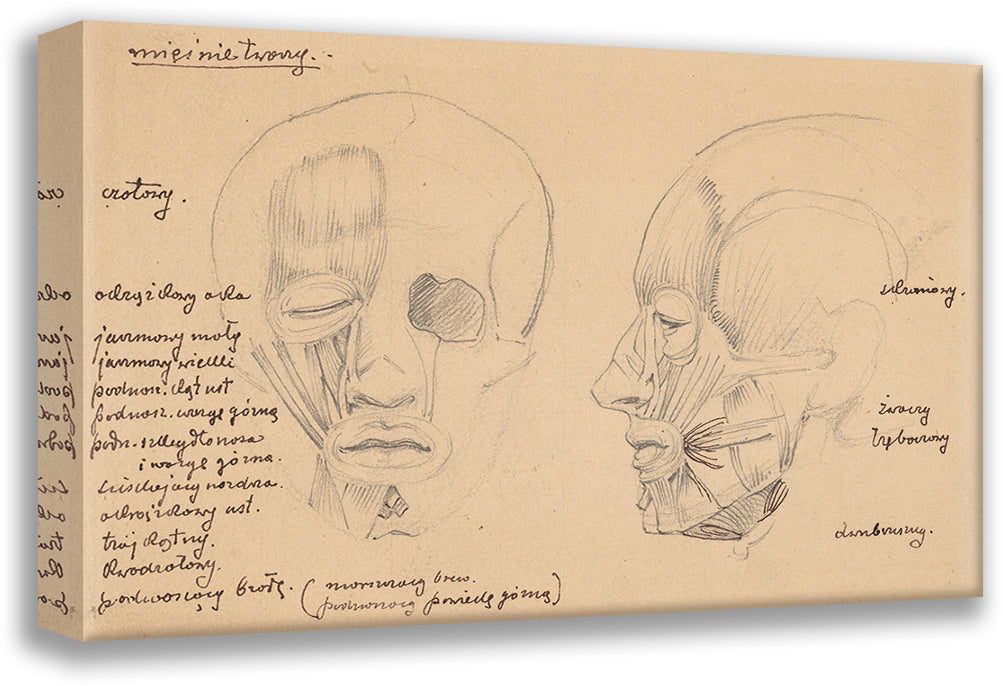 mięśnie twarzy.
czołowy.
okrężkowy oka
jarzmowy mały
jarzmowy wielki
podnosz. kąt ust
podnosz. wargę górną
podn. skrzydło nosa
i wargę górną.
ściskający nozdrza.
okrężkowy ust.
trójkątny.
kwadratowy.
podnoszący brodę. ( marszczący brew.
podnoszący powiekę górną )
skroniowy.
żwaczy
trębaczowy
dwubrzuszny.